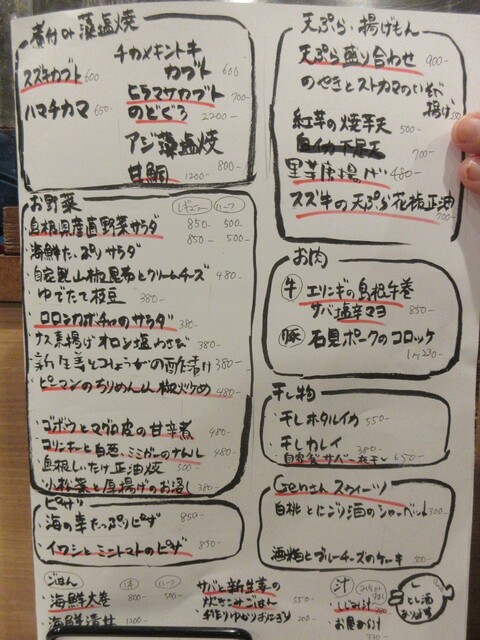 煮付or藻塩焼
スズキカブト 600
ハマチカマ 650
チカメキントキ
カブト 600
ヒラマサカブト 700
のどぐろ 2200
アジ藻塩焼 800
甘鯛 1200
お野菜 レギュラー ハーフ
島根県産直野菜サラダ 850 500
海鮮たっぷりサラダ 850 500
自家製山椒昆布とクリームチーズ 480
ゆでたて枝豆 380
コロコロカボチャのサラダ 380
ナス素揚げオロシ塩わさび 380
新生姜とみょうがの酢漬け 380
ピーマンのちりめん山椒炒め 480
ゴボウとマグロ皮の甘辛煮 480
島根しいたけ正油焼 500
小松菜と厚揚げのお浸し 380
ピザ
海の幸たっぷりピザ 850
イワシとミニトマトのピザ 850
ごはん ハーフ
海鮮太巻 800 500
海鮮漬丼 1200
サバと新生姜の
炊きこみごはん 550
手作りゆかりおにぎり
天ぷら・揚げもん
天ぷら盛り合わせ 900
のやきとストカマのいそべ
揚げ
紅芋の焼芋天 500
700
里芋唐揚げ 480
スズ牛の天ぷら花椒正油 700
お肉
牛 エリンギの島根牛巻
サバ塩辛マヨ 850
豚 石見ポークのコロッケ
1ヶ230-
干し物
干しホタルイカ 550
干しカレイ 380
自家製サバ一夜干し 650
Genさんスウィーツ
白桃とにごり酒のシャーベット 300
酒粕とブルーチーズのケーキ 500
汁
しじみ汁
お魚みそ汁